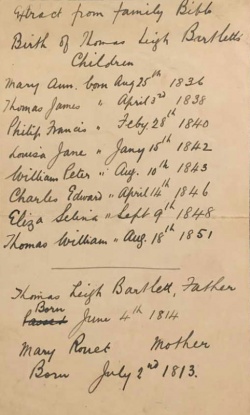 Extract from Family Bible
Birth of Thomas Leigh Bartlett's
Children
Mary Ann. born Aug 25th 1836
Thomas James " April 3rd 1838
Philip Francis " Feby. 28th 1840
Louisa Jane " Jany 15th 1842
William Peter " Aug. 10th 1843
Charles Edward " April 14th 1846
Eliza Selina " Sept 9th 1848
Thomas William " Aug. 18th 1851
Thomas Leigh Bartlett, Father
Born
June 4th 1814
Mary Mother
Born July 2nd 1813.